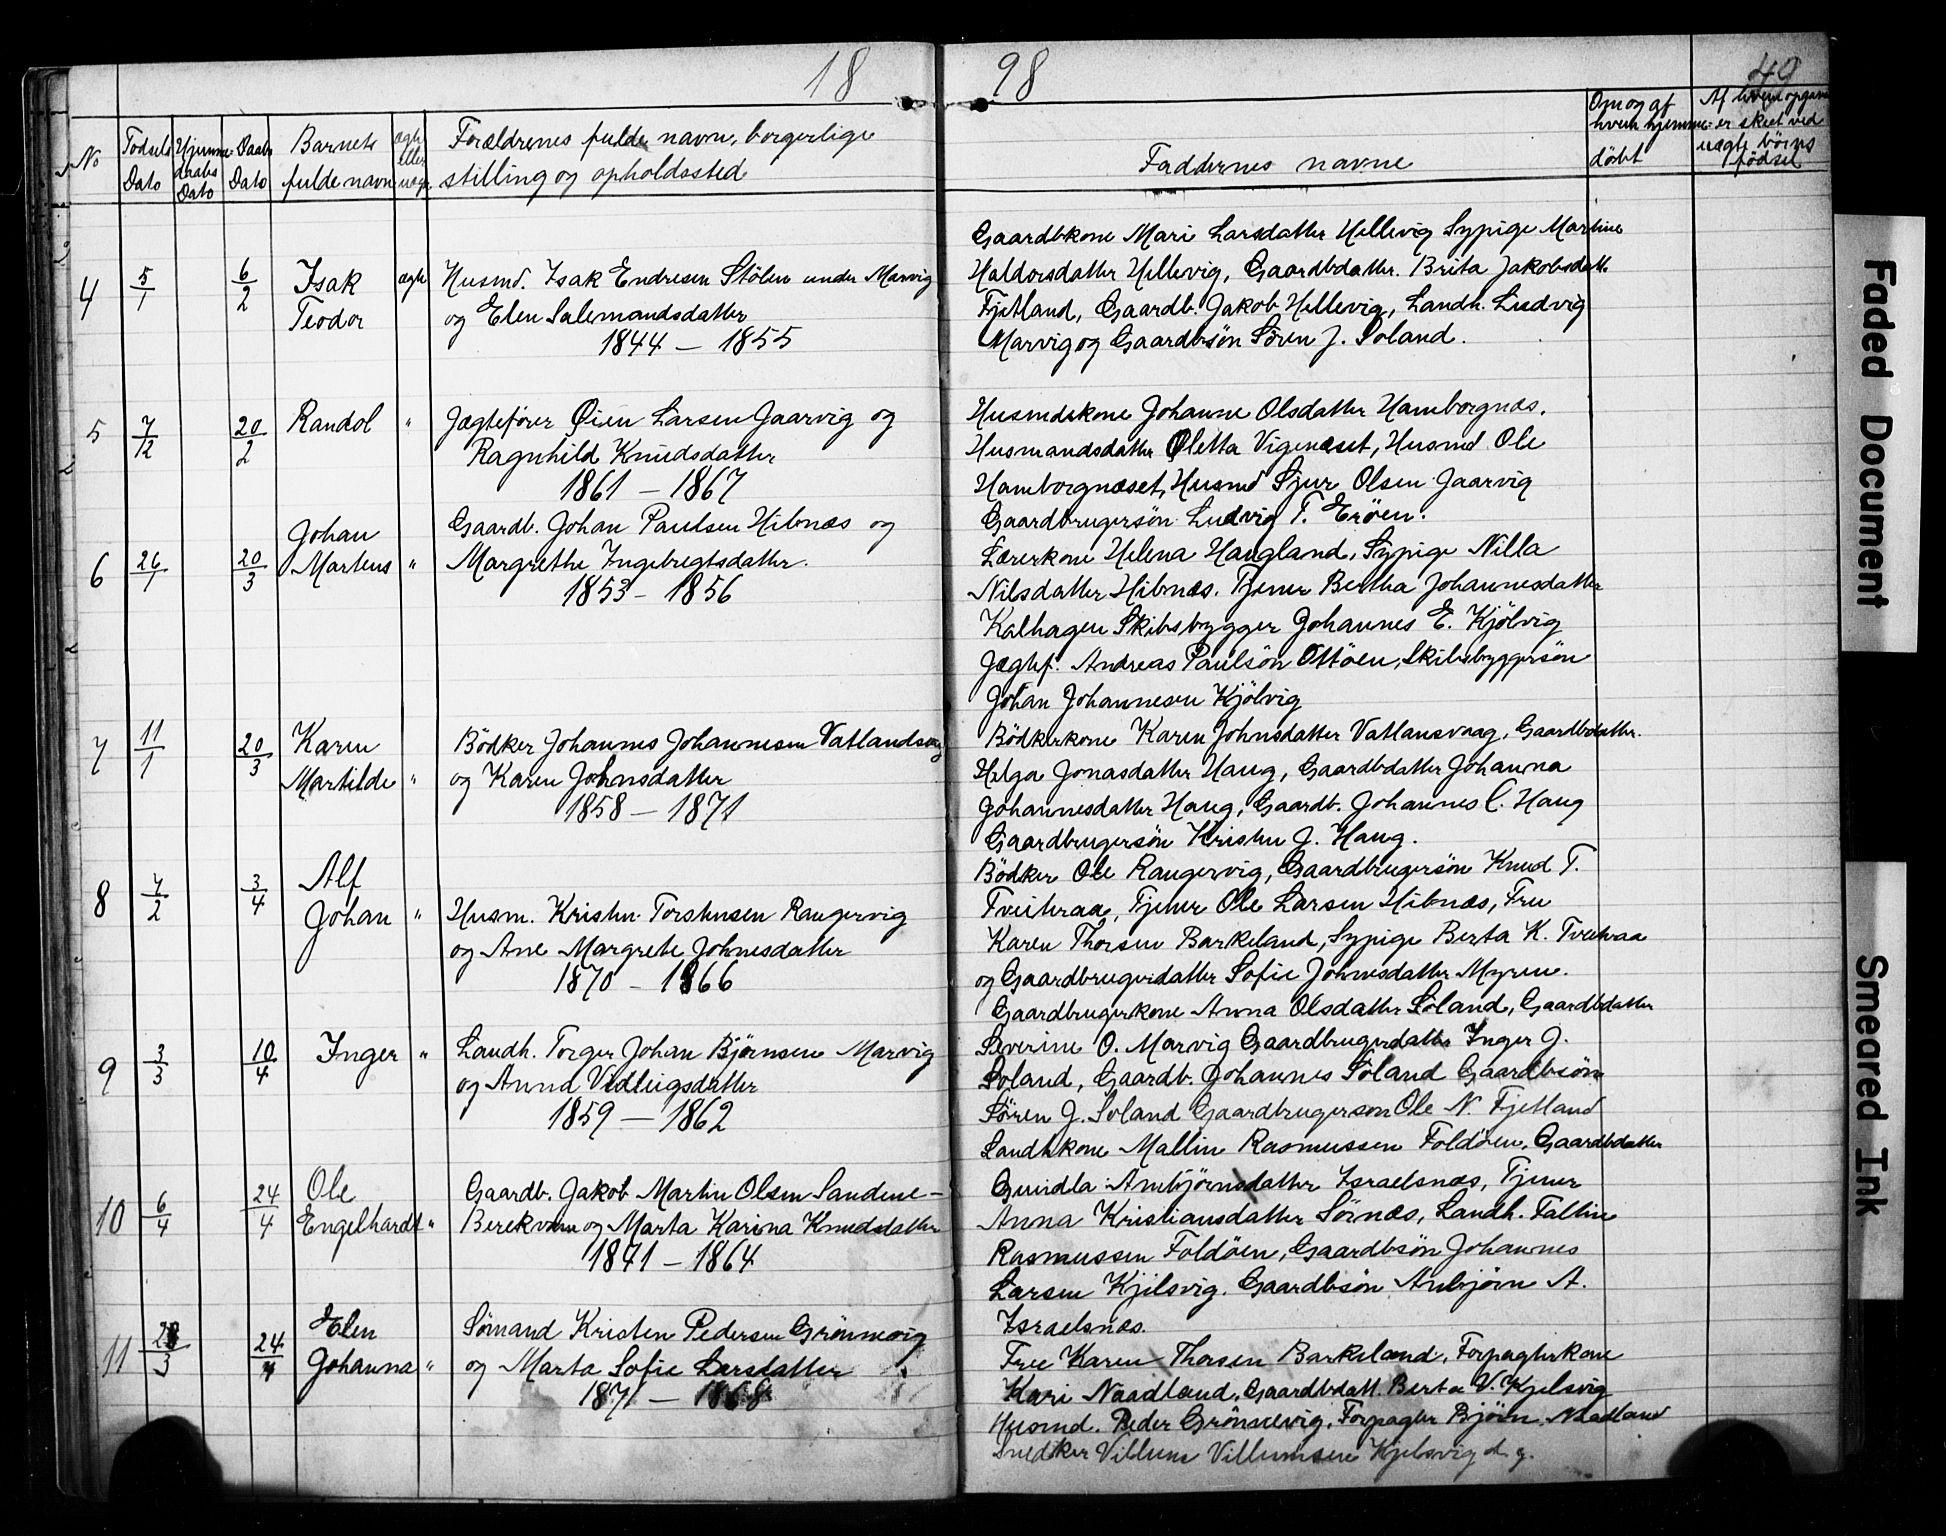 18 98
49
No
Fødsels Dato
Hjemme daabs Dato
Daabs Dato
Barnets fulde navn
ægte eller uægte
Forældrenes fulde navn, borgerlige
stilling og opholdssted
Faddernes navne
Om og af hvem hjemme døbt
Af hvem opgave er skeet ved uægte børns fødsel
4 5/1 6/2 Isak Teodor ægte
Husmd. Isak Endresen Stölen under Marvig
og Elen Salemandsdatter
1844 — 1855
Gaardbkone Mari Larsdatter Hellevig Sypige Martine
Haldorsdatter Hellevig, Gaardbdatter. Brita Jakobsdatt.
Fjetland, Gaardb. Jakob Hellevig, Landh. Ludvig
Marvig og Gaardbsön Sören J. Soland.
5 7/12 20/2 Randol "
Jægtefører Øien Larsen Jaarvig og
Ragnhild Knudsdatter
1861 — 1867
Husmdskone Johanne Olsdatter Hamborgnæs.
Husmandsdatter Oletta Vigenæset, Husmd Ole
Hamborgnæset, Husmd Sjur Olsen Jaarvig
Gaardbrugersön Ludvig T. Eröen.
6 26/1 20/3 Johan Martens "
Gaardb. Johan Paulsen Hibnæs og
Margrethe Ingebregtsdatter.
1853 — 1856
Lærerkone Helena Haugland, Sypige Nilla
Nilsdatter Hibnæs. Tjener Bertha Johannesdatter
Kalhagen Skibsbygger Johannes E. Kjölvig
Jægtef. Andreas Paulsön Ottöen, Skibsbyggersön
Johan Johannesen Kjölvig
7 11/1 20/3 Karen Martilde "
Bödker Johannes Johannesen Vatlandsvag
og Karen Johnsdatter
1858 — 1871
Bödkerkone Karen Johnsdatter Vatlansvaag, Gaardbdatter.
Helga Jonasdatter Haug, Gaardbdatter Johanna
Johannesdatter Haug, Gaardb. Johannes C. Haug
Gaardbrugersön Kristen J. Haug.
8 7/2 3/4 Alf Johan "
Husm. Kristen Torstensen Raugervig
og Ane Margrete Johnesdatter
1870 — 1866
Bödker Ole Raugervig, Gaardbrugersön Knud T.
Tveiteraa, Tjener Ole Larsen Hibnæs, Fru
Karen Thorsen Barkeland, Sypige Berta K. Tveteraa
og Gaardbrugerdatter Sofie Johnesdatter Myren.
9 3/3 10/4 Inger "
Landh. Torger Johan Bjørnsen Marvig
og Anna Vidlugsdatter
1859 — 1862
Gaardbrugerkone Anna Olsdatter Soland, Gaardbdatter
Severine O. Marvig Gaardbrugerdatter Inger J.
Soland, Gaardb. Johannes Soland Gaardbsön
Sören J. Soland Gaardbrugerson Ole N. Fjetland
10 6/4 24/4 Ole Engelhardt "
Gaardb. Jakob Martin Olsen Sandene-
Berekvam og Marta Karina Knudsdatter
1871 — 1864
Landhkone Mallin Rasmussen Foldöen, Gaardbdatter
Gundla Anbjörnsdatter Israelsnæs, Tjener
Anna Kristiansdatter Sörnæs, Landh. Tallin
Rasmussen Foldöen, Gaardbsön Johannes
Larsen Kjilsvig. Gaardbsön Anbjörn A.
Israelsnæs.
11 28/3 24/4 Elen Johanna "
Sömand Kristen Pedersen Grönnevig
og Marta Sofie Larsdatter
1871 — 1868
Frue Karen Thorsen Barkeland, Forpagterkone
Kari Naadland, Gaardbdatt. Berta V. Kjelsvig
Husmd. Peder Grönnevig, Forpagter Björn Naadland
Snedker Villum Villumsen Kjelsvig d. y.
Faded Document
Smeared Ink